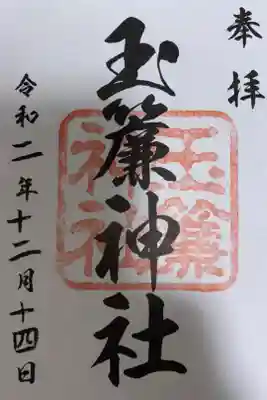 奉拝
玉簾神社
玉簾神社
令和二年十二月十四日